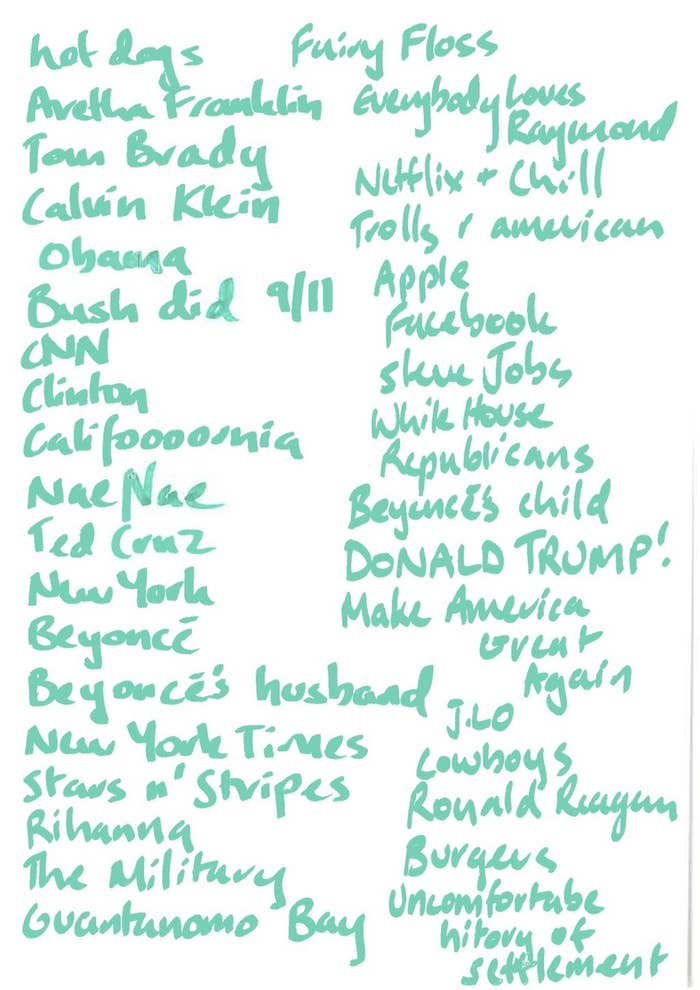 hot dogs
Aretha Franklin
Tom Brady
Calvin Klein
Obama
Bush did 9/11
CNN
Clinton
Califoooornia
Nae Nae
Ted Cruz
New York
Beyoncé
Beyoncé's husband
New York Times
Stars n' Stripes
Rihanna
The Military
Guantanomo Bay
Fairy Floss
Everybody Loves
Raymond
Netflix + Chill
Trolls / american
Apple
Facebook
Steve Jobs
White House
Republicans
Beyoncé's child
DONALD TRUMP!
Make America
Great
Again
J.LO
Cowboys
Ronald Reagan
Burgers
Uncomfortabe
hitory of
settlement